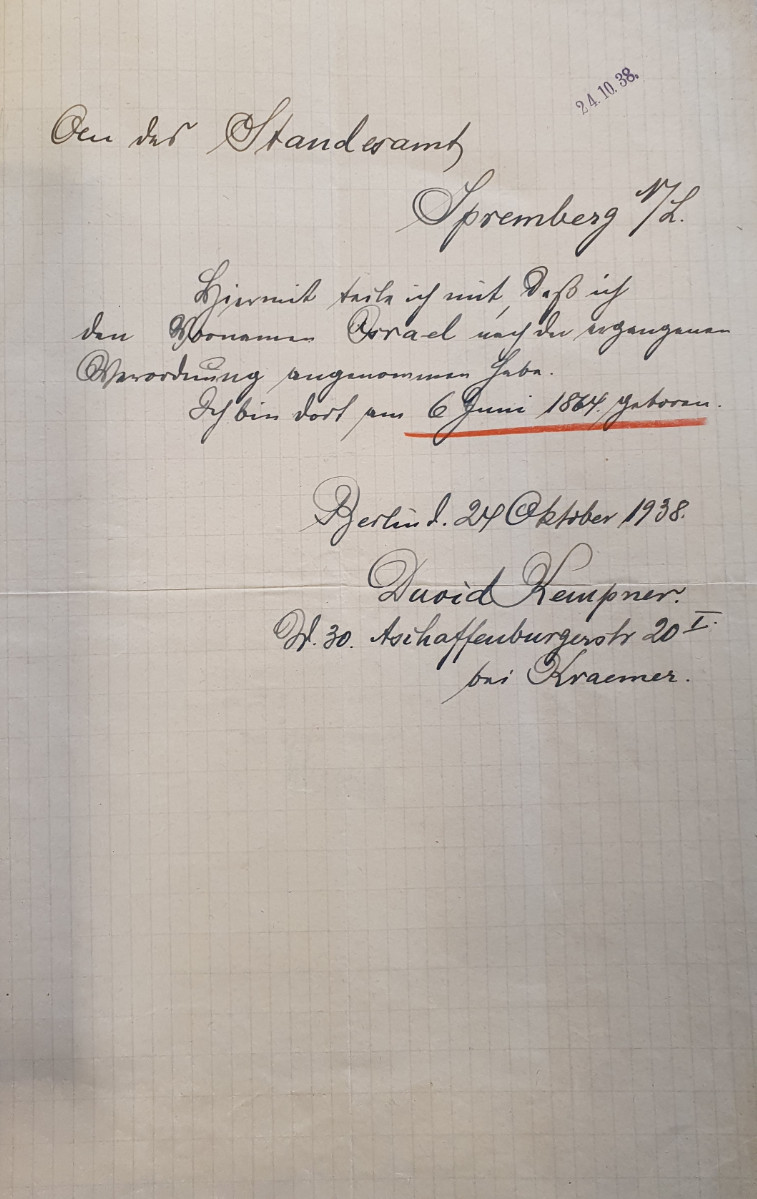 24.10.38.
An das Standesamt
Spremberg N/L.
Hiermit teile ich mit, daß ich
den Vornamen Israel nach der ergangenen
Verordnung angenommen habe.
Ich bin dort am 6 Juni 1864. geboren.
Berlin d. 24 Oktober 1938.
David Kempner.
W. 30. Aschaffenburgerstr 20 I.
bei Kraemer.